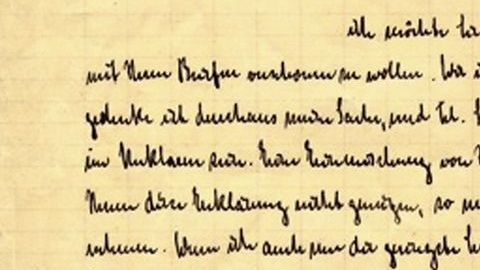 ich möchte
mit Ihren Briefen verschonen zu wollen. Wie
gedenke ich durchaus meine Sache, und
im Unklaren sein. Eine Einmischung von
Ihnen diese Erklärung nicht genügen, so
nehmen. Wenn ich auch nur die geringste